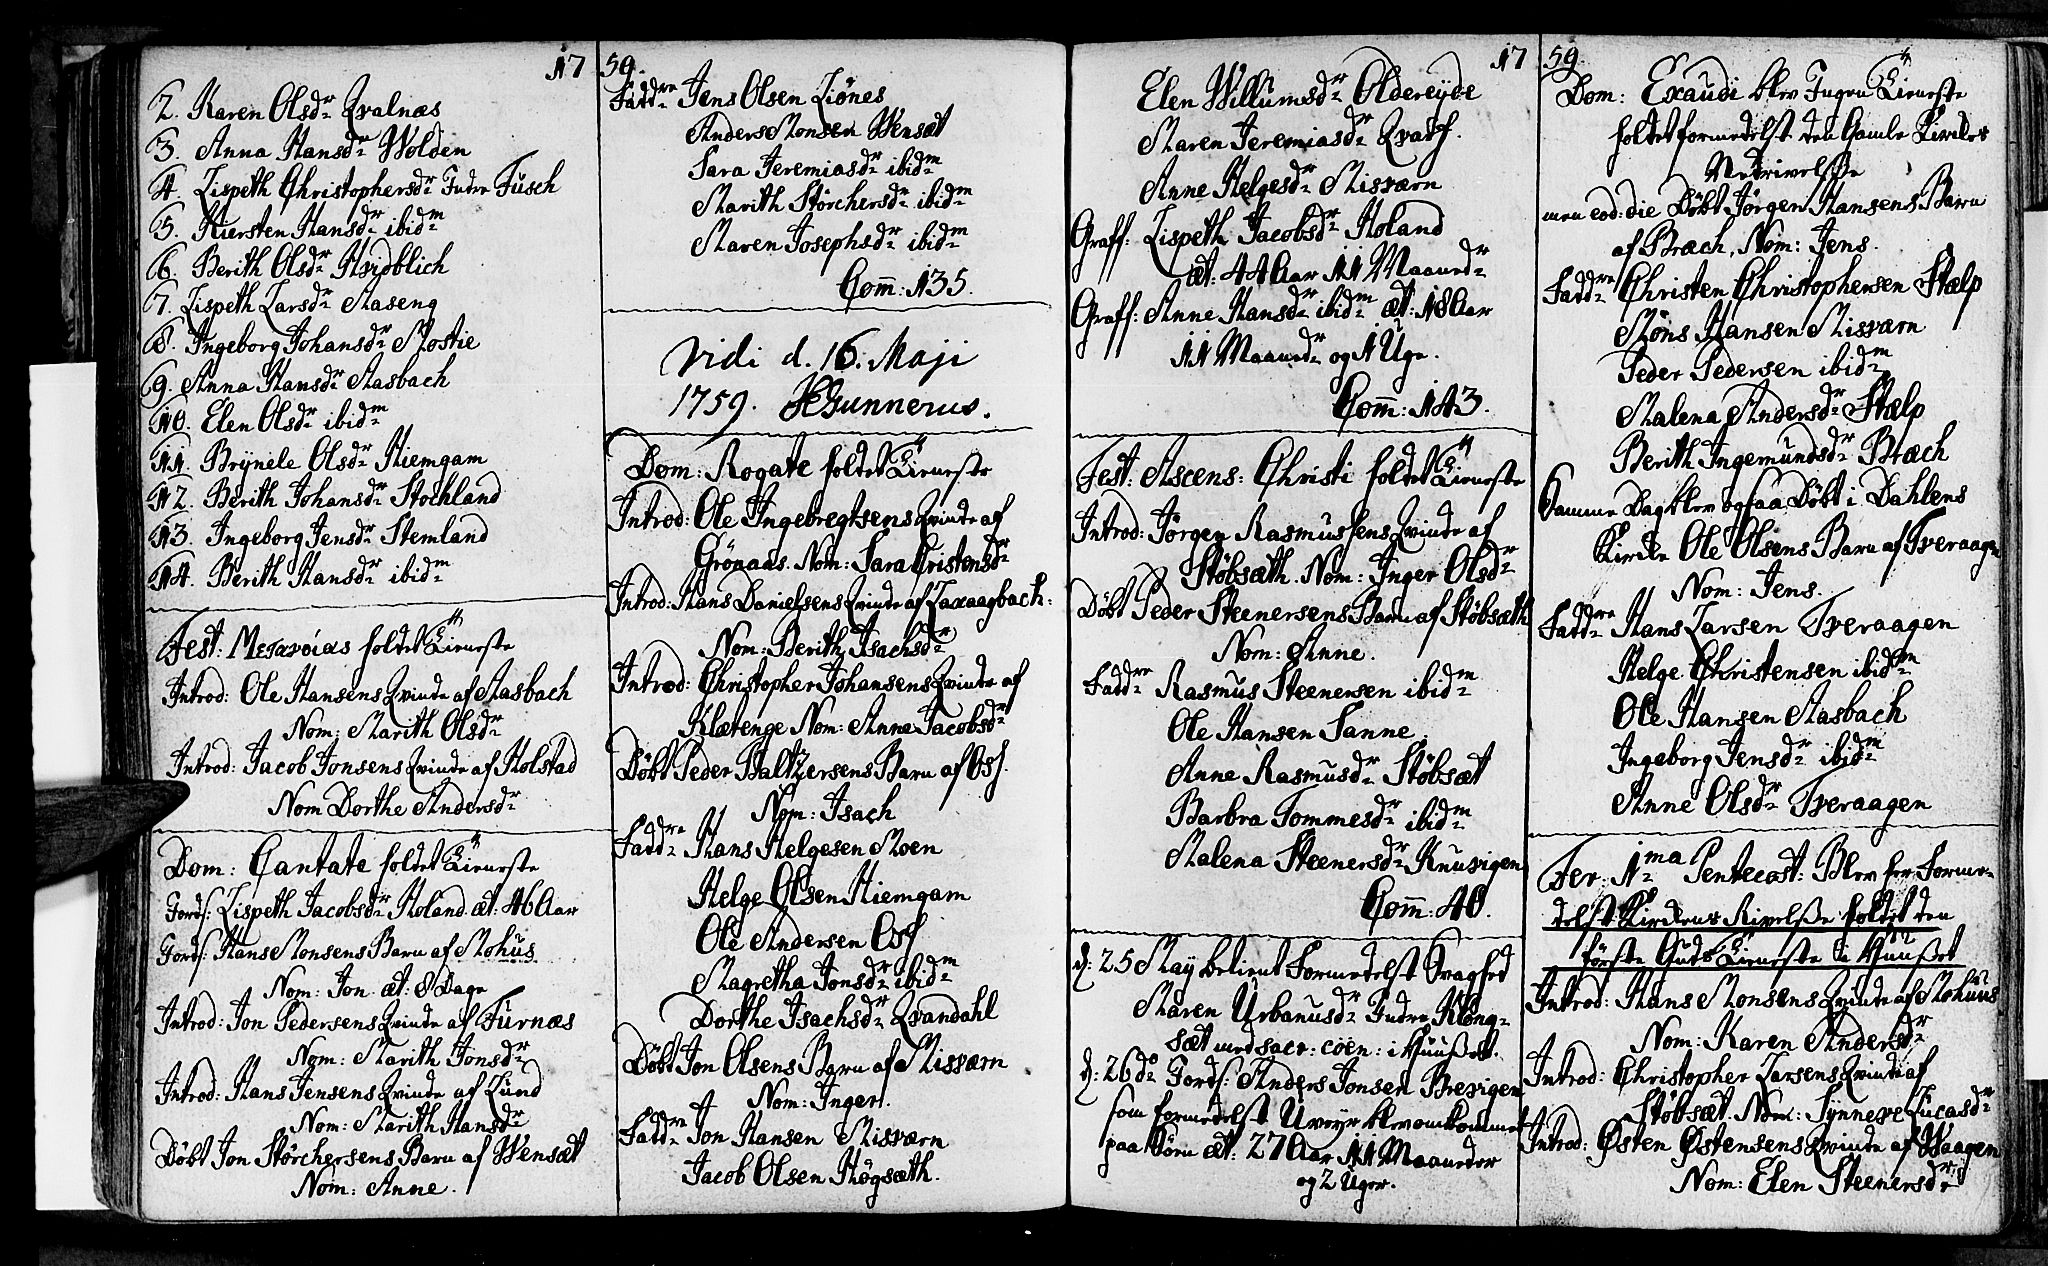 1759.
2. Karen Olsdr Hvalnæs
3. Anna Hansdr Wolden
4. Lispeth Christophersdr Indre Fusch
5. Kiersten Hansdr ibidm
6. Berith Olsdr Hvidblich
7. Lispeth Larsdr Aaseng
8. Ingeborg Johansdr Mostie
9. Anna Hansdr Aasbach
10. Elen Olsdr ibidm
11. Brynele Olsdr Hiemgam
12. Berith Johansdr Stochland
13. Ingeborg Jensdr Stemland
14. Berith Hansdr ibidm
Fest: Μετανοίας holdet Tieneste
Introd: Ole Hansens Qvinde af Aasbach
Nom: Marith Olsdr
Introd: Jacob Jonsens Qvinde af Holstad
Nom Dorthe Andersdr
Dom: Cantate holdet Tieneste
Jords: Lispeth Jacobsdr Holand æt: 46 Aar
Jords: Hans Monsens Barn af Mohus
Nom: Jon æt: 8 Dage
Introd: Jon Pedersens Qvinde af Furnæs
Nom: Marith Jonsdr
Introd: Hans Jensens Qvinde af Lund
Nom: Marith Hansdr
Døbt Jon Størchersens Barn af Wensæt
Nom: Anne.
Faddre Jens Olsen Liønes
Anders Monsen Wensæt
Sara Jeremiasdr ibidm
Marith Størchersdr ibidm
Maren Josephsdr ibidm
Com̄: 135.
Vidi d. 16. Maji
1759. JEGunnerus.
Dom: Rogate holdet Tieneste
Introd: Ole Ingebregtsens Qvinde af
Grönaas. Nom: Sara Cristensdr
Introd: Hans Danielsens Qvinde af Laxaagbach.
Nom: Berith Isachsdr
Introd: Christopher Johansens Qvinde af
Klætenge Nom: Anne Jacobsdr
Døbt Peder Baltzersens Barn af Osf.
Nom: Isach
Faddre Hans Helgesen Moen
Helge Olsen Hiemgam
Ole Andersen Osf
Magretha Jonsdr ibidm
Dorthe Isachsdr Qvandahl
Døbt Jon Olsens Barn af Misværn
Nom: Inger.
Faddre Jon Hansen Misværn
Jacob Olsen Høgsæth.
1759.
Elen Willumsdr Oldereyde
Maren Jeremiasdr Hvarf.
Anne Helgesdr Misværn
Graff: Lispeth Jacobsdr Holand
æt: 44 Aar 11 Maaneder
Graff: Anne Hansdr ibidm æt: 18 Aar
11 Maaneder og 1 Uge.
Com̄: 143.
Fest: Ascens: Christi holdet Tieneste
Introd: Jørgen Rasmussens Qvinde af
Støbsæth. Nom: Inger Olsdr
Døbt Peder Steenersens Barn af Støbsæth
Nom: Anne.
Faddre Rasmus Steenersen ibidm
Ole Hansen Sanne
Anne Rasmusdr Støbsæt
Barbra Tommesdr ibidm
Malena Steenersdr Knusvigen
Com̄: 40.
d: 25 May betient Formedelst Svaghed
Maren Urbanusdr Indre Kløng-
sæt med sacr: coen: i Huuset.
d: 26do Jords: Anders Jonsen Brevigen
som formedelst Uveyr blev omkommet
paa Søen æt: 27 Aar 11 Maaneder
og 2 Uger.
Dom: Exaudi blev Ingen Tieneste
holdet formedelst den Gamle Kirckes
Nedrivelse
men eod: die Døbt Jørgen Hansens Barn
af Bræch, Nom: Jens.
Faddre Christen Christophersen Skelp
Møns Hansen Misværn
Peder Pedersen ibidm
Malena Andersdr Skelp
Berith Ingemundsdr Bræch
Samme Dag blev ogsaa Døbt i Dahlens
Kircke Ole Olsens Barn af Tveraagen
Nom: Jens.
Faddre Hans Larsen Tveraagen
Helge Christensen ibidm
Ole Hansen Aasbach
Ingeborg Jensdr ibidm
Anne Olsdr Tveraagen
Fer: 1ma Pentecost: Blev her Forme-
delst Kirckens Rivelse holdet den
første Guds Tieneste i Huuset
Introd: Hans Monsens Qvinde af Mohuus
Nom: Karen Andersdr
Introd: Christopher Larsens Qvinde af
Støbsæt. Nom: Synneve Lucasdr
Introd: Østen Østensens Qvinde af Waagen
Nom: Elen Steenersdr